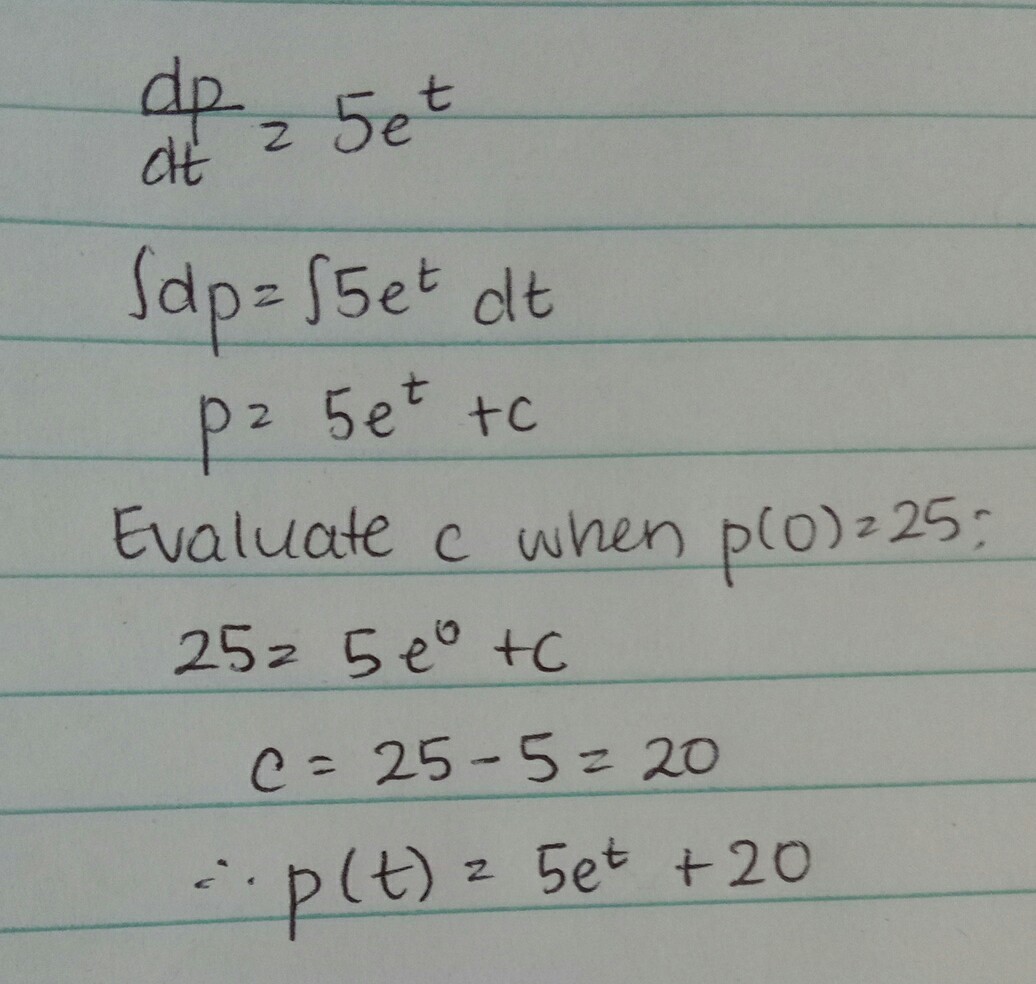 dp/dt = 5e^t
∫dp = ∫5e^t dt
p = 5e^t + c
Evaluate c when p(0) = 25:
25 = 5e^0 + c
c = 25 - 5 = 20
∴ p(t) = 5e^t + 20